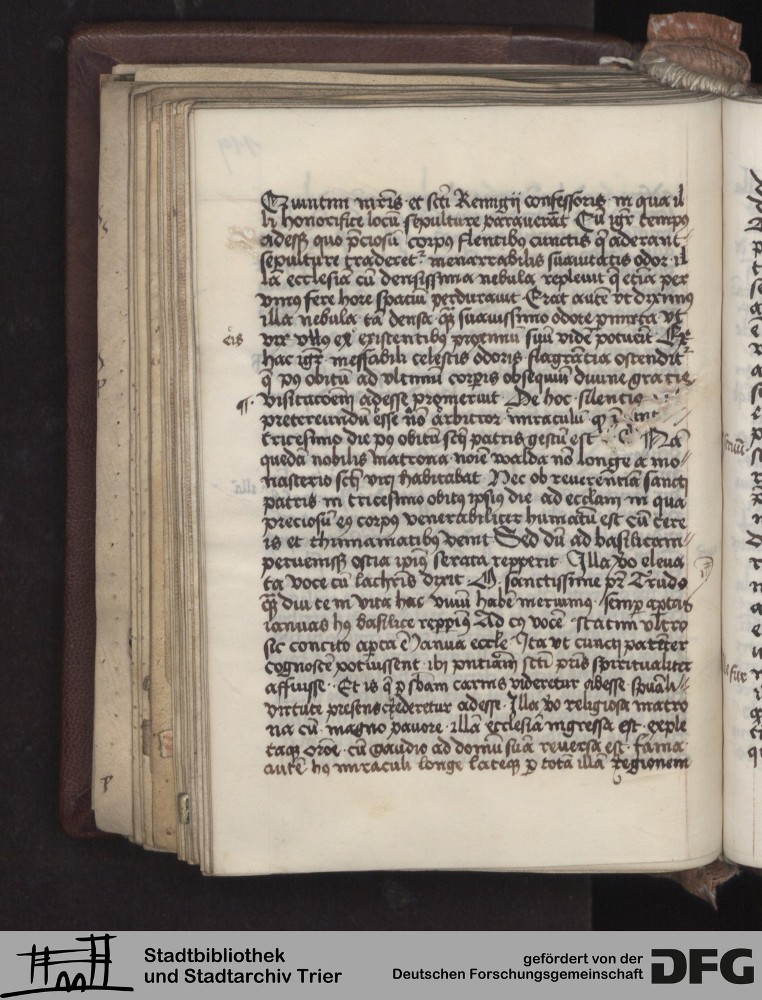 martiris et sancti Remigii confessoris in qua il
li honorifice locū sepulture p̄parauerāt Cū igr̄ tempꝰ
adess; quo p̄ciosuꝫ corpus flentibꝰ cunctis q̄ aderant
sepulture traderet᷑ inenarrabilis suauitatis odor il
lā ecclesiā cū densissima nebula repleuit q̄ etiā per
vniꝰ fere hore spaciū perdurauit Erat autē vt diximꝰ
illa nebula tā densa suauissimo odore vt
vix vllꝰ ex existentibꝰ proximū suū vide potuerit Ex
eis
hac igr̄ ineffabili celestis odoris flagrātia ostendit᷑
q̄ pꝰ obitū ad vltimū corpis obsequiū diuine gratie
visitatōem adesse promeruit De hoc silentio
pretereundū esse nō arbitror miraculū
tricesimo die pꝰ obitū scī patris gestū est Nā
quedā nobilis matrona noīe walda nō longe a mo
nasterio scī viri habitabat Hec ob reuerentiā sancti
patris in tricesimo obitꝰ ipsiꝰ die ad ecclām in qua
preciosū eiꝰ corpꝰ venerabiliter humatū est cū cere
is et thimiamatibꝰ venit Sed dū ad basilicam
peruenissꝫ ostia ipiꝰ serata repperit Illa vo eleua
ta voce cū lachrīs dixit O sanctissime pr̄ Trudo
diu te in vita hac viuū habe meruimꝰ semp aptas
ianuas hꝰ basilice reppiꝰ Ad cꝰ vocē statim vltro
sic concito apta ē ianua eccle Ita vt cuncti pariter
cognosce potuissent ibi pn̄tiam scī pris spiritualiter
affuisse Et is q̄ p sbam carnis videretur abesse spūali
virtute presens crederetur adesse Illa vo religiosa matro
na cū magno pauore illā ecclesiā ingressa est exple
taqꝫ orōe cū gaudio ad domū suā reuersa est fama
autē hꝰ miraculi longe lateqꝫ p totā illā regionem
Stadtbibliothek
und Stadtarchiv Trier
gefördert von der
Deutschen Forschungsgemeinschaft
DFG